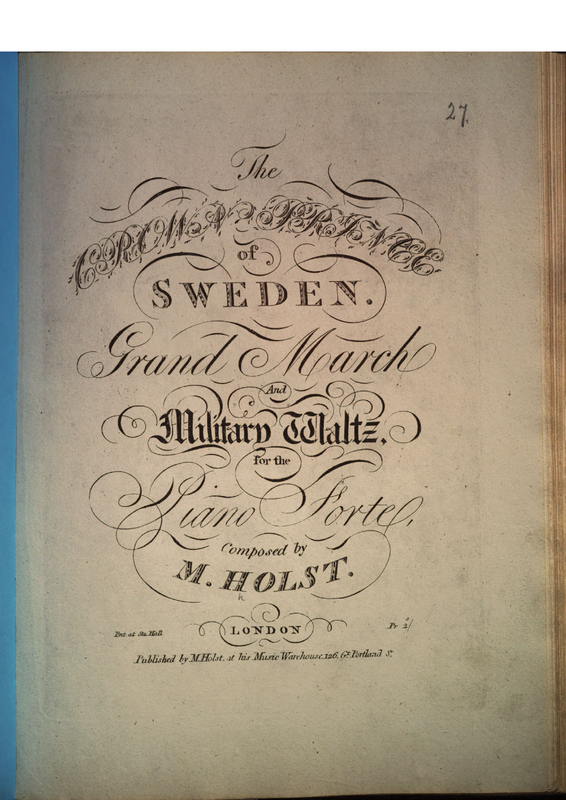 27.
The
CROWN PRINCE
of
SWEDEN.
Grand March
And
Military Waltz,
for the
Piano Forte,
Composed by
M. HOLST.
h
LONDON
Ent. at Sta. Hall.
Pr. 2/
Published by M. Holst, at his Music Warehouse, 126, Gt. Portland St.